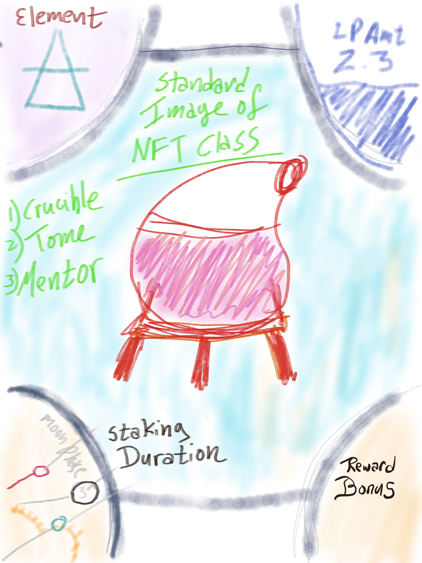 Element
LP Amt
2.3
Standard
Image of
NFT Class
1) Crucible
2) Tome
3) Mentor
moon phase
Staking
Duration
Reward
Bonus